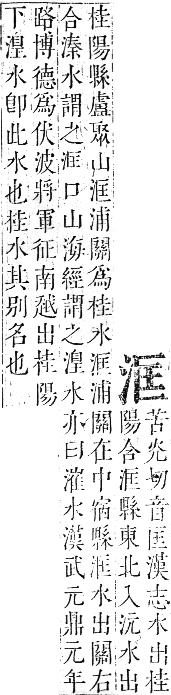 洭
苦光切音匡漢志水出桂
陽合洭縣東北入沅水出
桂陽縣盧聚山洭浦關為桂水洭浦關在中宿縣洭水出關右
合溱水謂之洭口山海經謂之湟水亦曰灌水漢武元鼎元年
路博德為伏波將軍征南越出桂陽
下湟水卽此水也桂水其别名也